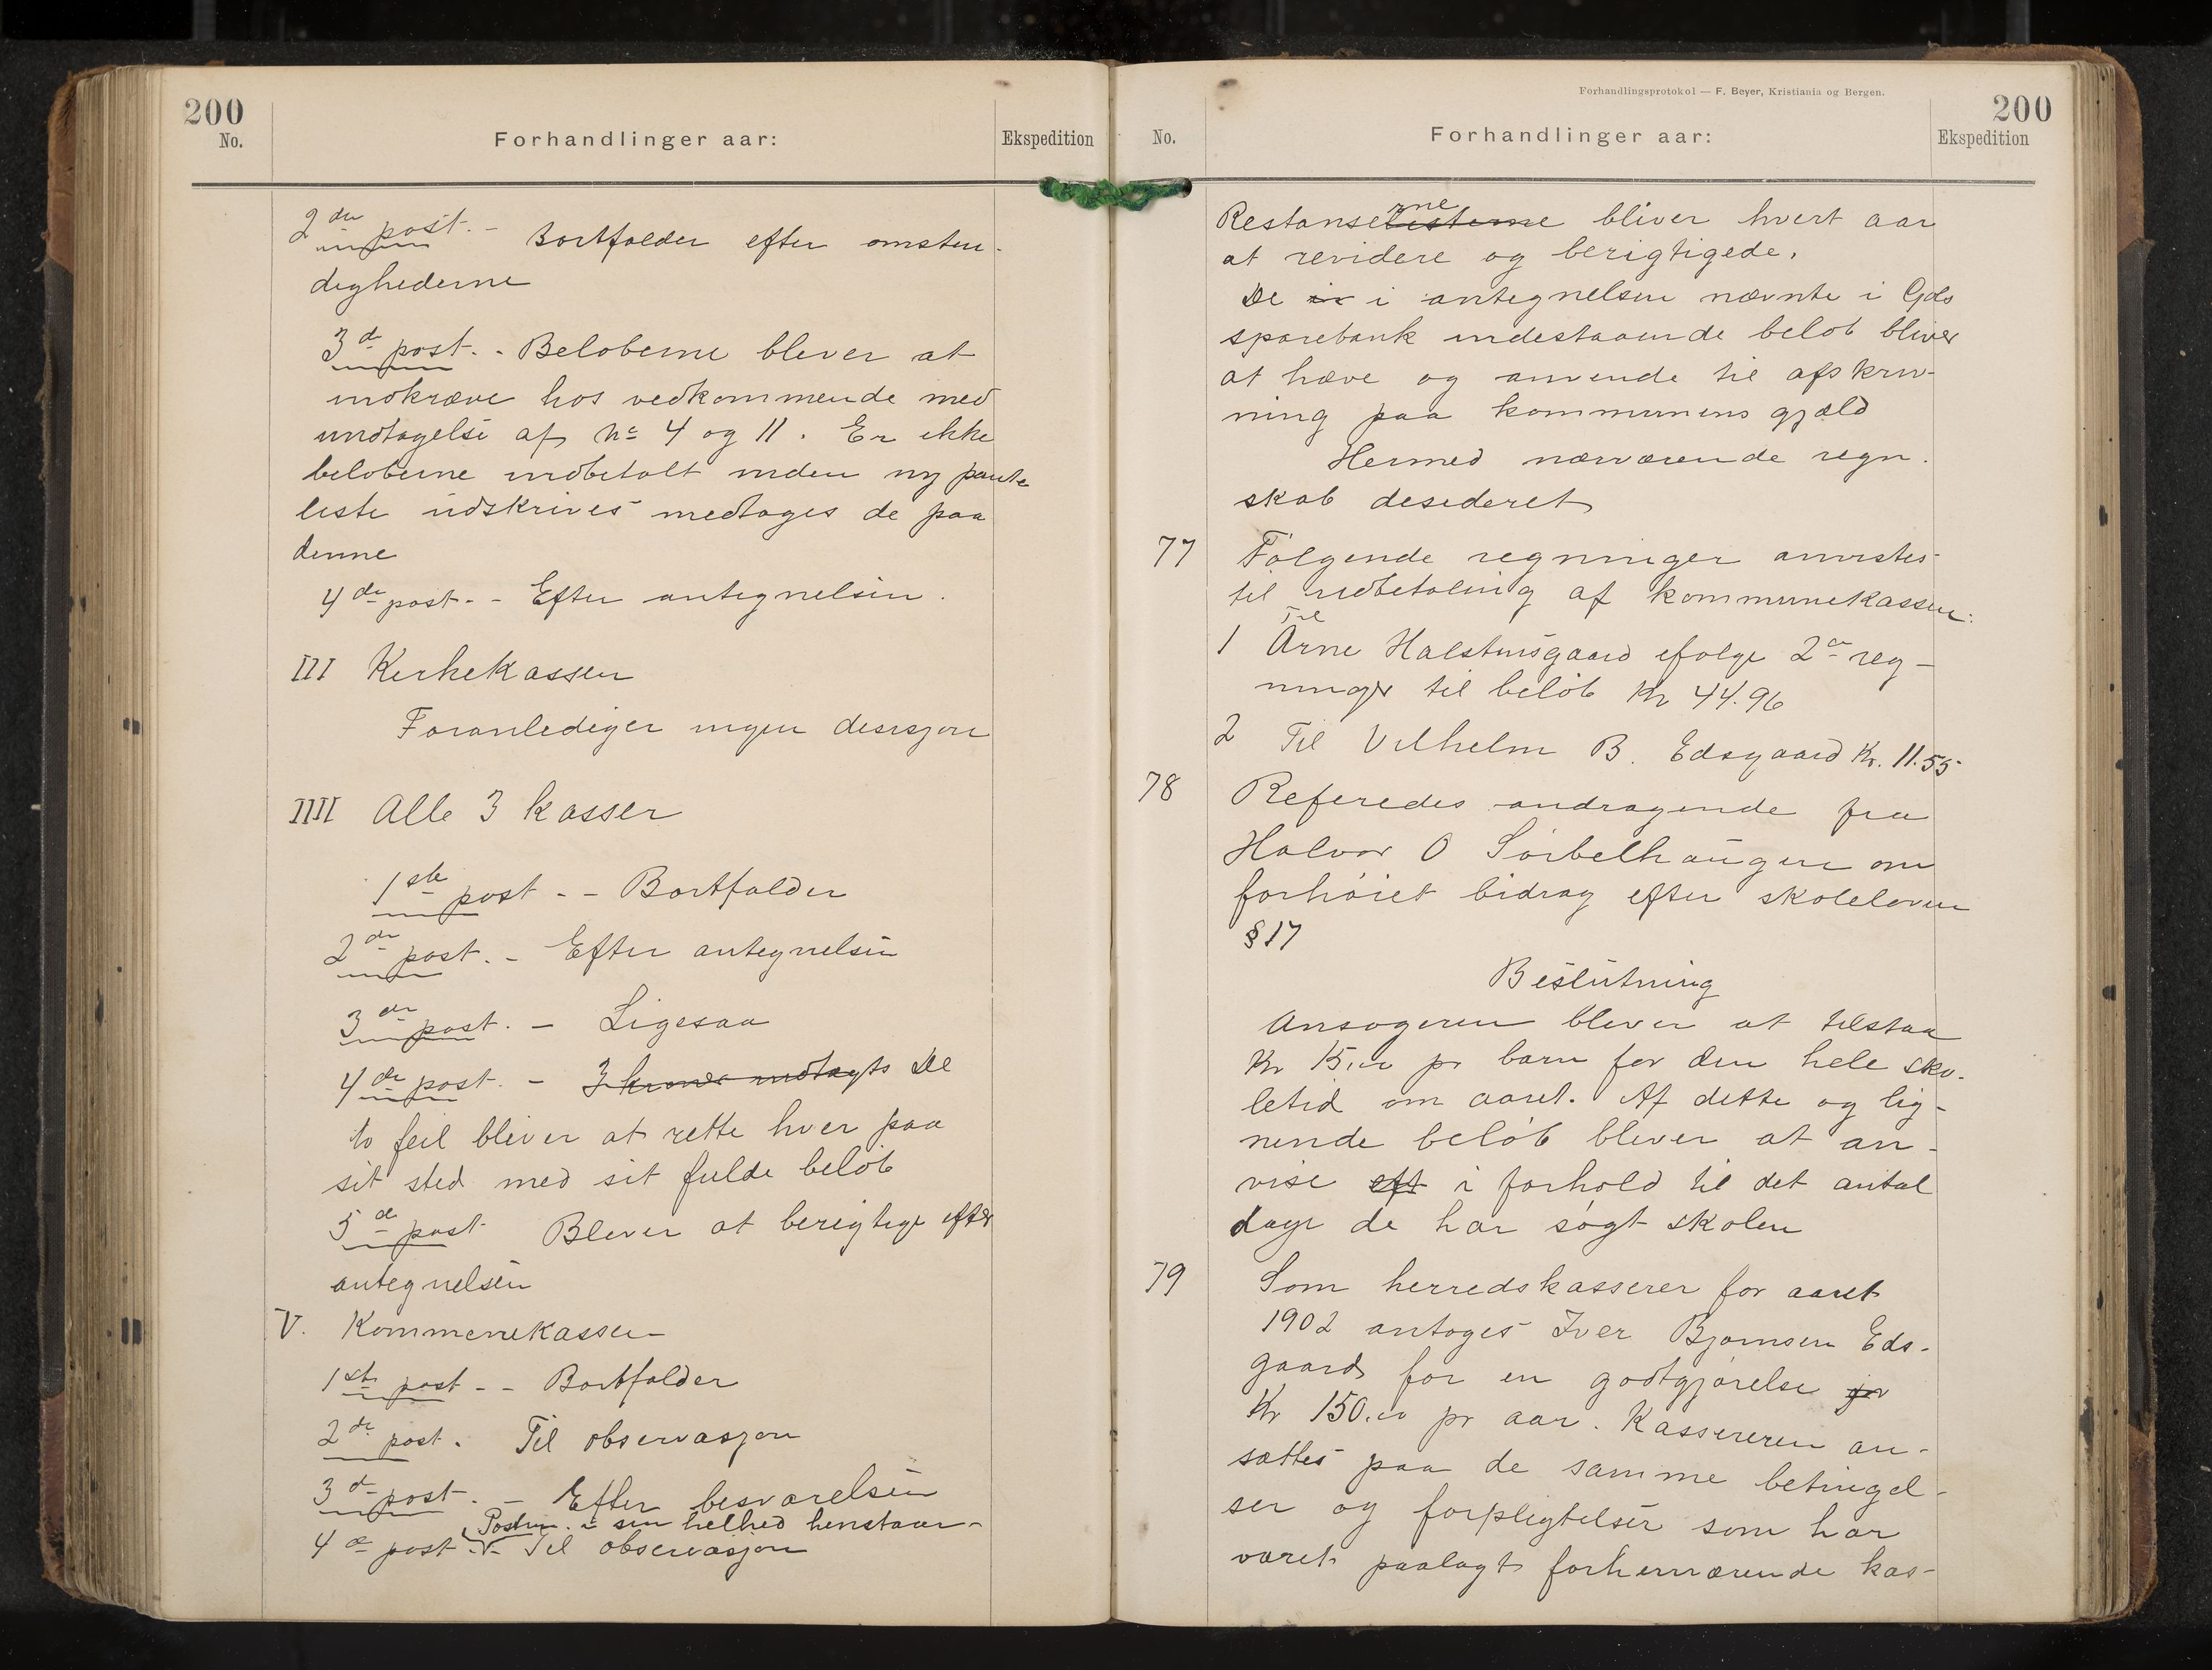 200
No.
Forhandlinger aar:
Ekspedition
2den post. - Bortfalder efter omsten-
dighederne
3d post. - Beløberne bliver at
indkræve hos vedkommende med
undtagelse af No 4 og 11. Er ikke
beløberne indbetalt inden ny pante
liste udskrives medtages de paa
denne
4de post. - Efter antegnelsen.
III Kirkekassen
Foranlediger ingen desisjon
IIII Alle 3 kasser
1ste post - - Bortfalder
2den post. - Efter antegnelsen
3die post. - Ligesaa
4de post. - 3 kroner undtagts De
to feil bliver at rette hver paa
sit sted med sit fulde beløb
5de post Bliver at berigtige efter
antegnelsen
V. Kommunekassen
1ste post - - Bortfalder
2den post. Til observasjon
3d post. - Efter besvarelsen
Posten i sin helhed henstaar-
4de post. - Til observasjon
Forhandlingsprotokol — F. Beyer, Kristiania og Bergen.
200
No.
Forhandlinger aar:
Ekspedition
rne
Restanselisterne bliver hvert aar
at revidere og berigtigede.
De i antegnelsen nævnte i Gols
sparebank indestaaende beløb bliver
at hæve og anvende til afskriv-
ning paa kommunens gjæld
Hermed nærværende regn-
skab desideret
77 Følgende regninger anvistes
til udbetaling af kommunekassen:
Til
1 Arne Halstensgaard ifølge 2de reg-
ninger til beløb Kr 44.96
2 Til Vilhelm B. Edsgaard Kr. 11.55
78 Referedes andragende fra
Halvor O Sørbelhaugen om
forhøiet bidrag efter skoleloven
§ 17
Beslutning
Ansøgeren bliver at tilstaa
Kr 15.00 pr barn for den hele sko-
letid om aaret. Af dette og lig-
nende beløb bliver at an-
vise eft i forhold til det antal
dage de har søgt skolen
79 Som herredskasserer for aaret
1902 antoges Iver Bjørnsen Eds-
gaard for en godtgjørelse for
Kr 150.00 pr aar. Kassereren an-
sættes paa de samme betingel-
ser og forpligtelser som har
været paalagt forhenværende kas-